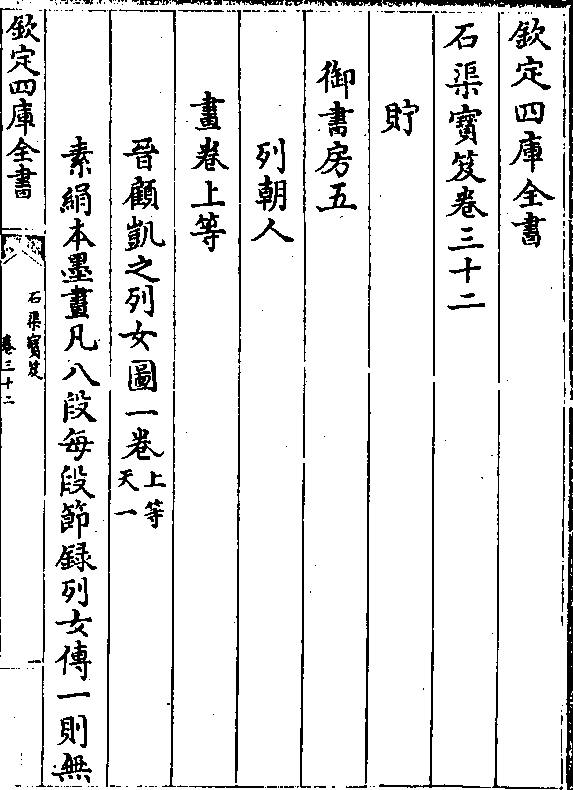 欽定四庫全書
石渠寳笈卷三十二
貯
御書房五
列朝人
畫卷上等
晉顧凱之列女圖一卷上等天一
素絹本墨畫凡八段每段節録列女傳一則無
欽定四庫全書
石渠寳笈
卷三十二
一